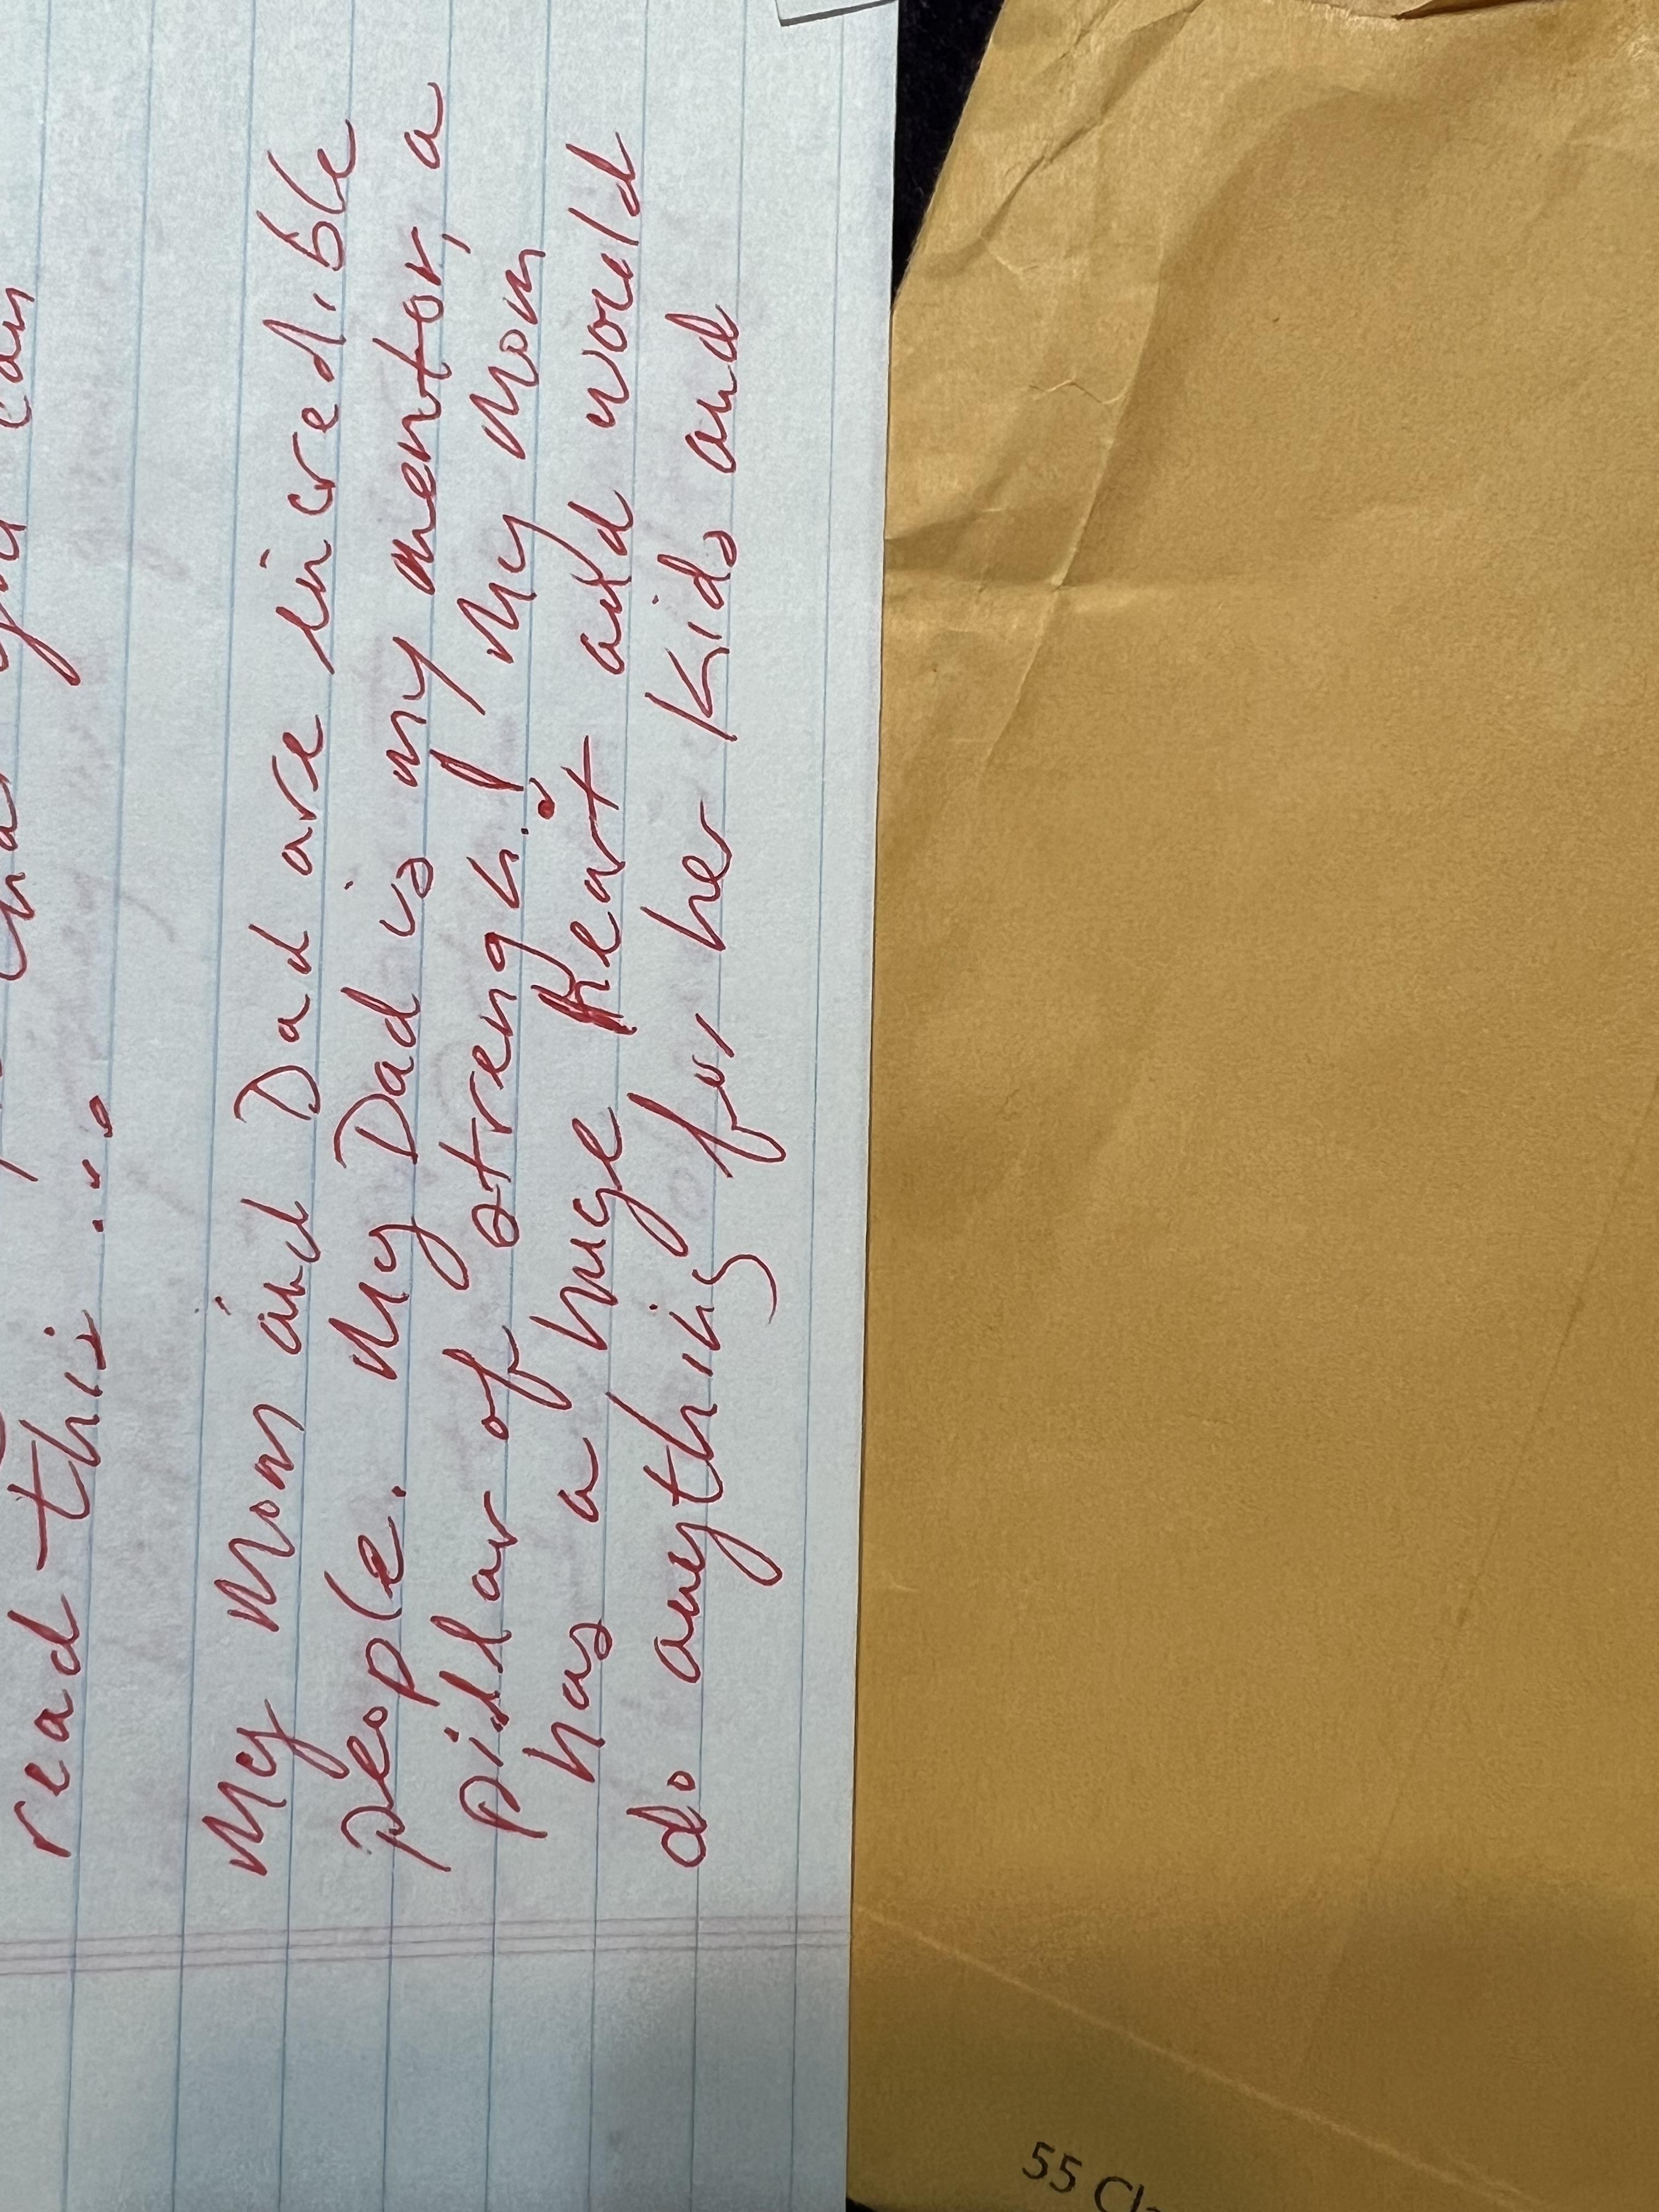 read this...
My Mom and Dad are incredible
people. My Dad is my mentor, a
pillar of strengh! My Mom
has a huge heart and would
do anything for her kids and
55